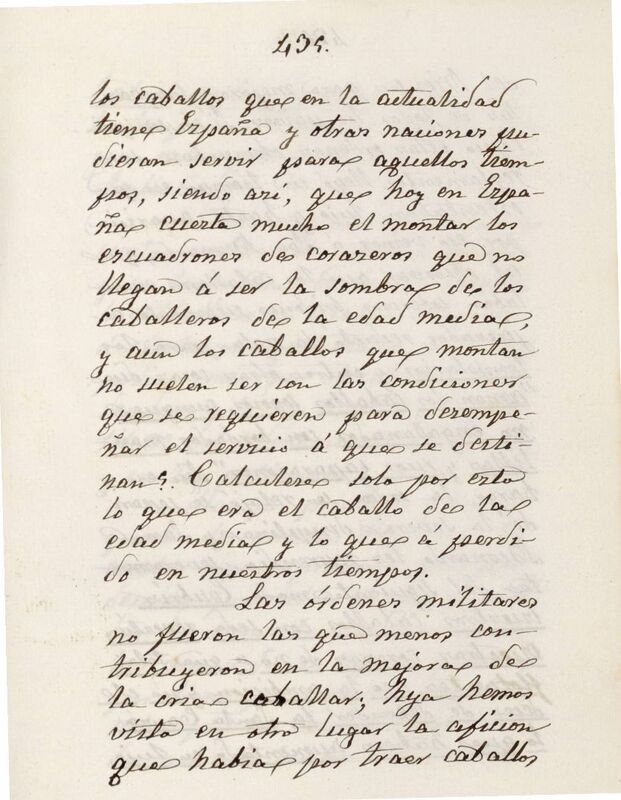 435.
los caballos que en la actualidad
tiene España y otras naciones pu-
dieran servir para aquellos tiem-
pos, siendo asi, que hoy en Espa-
ña cuesta mucho el montar los
escuadrones de corazeros que no
llegan á ser la sombra de los
caballeros de la edad media,
y aun los caballos que montan
no suelen ser con las condiciones
que se requieren para desempe-
ñar el servicio á que se desti-
nan. Calculese solo por esto
lo que era el caballo de la
edad media y lo que á perdi-
do en nuestros tiempos.
Las órdenes militares
no fueron las que menos con-
tribuyeron en la mejora de
la cria caballar; hya hemos
visto en otro lugar la aficion
que habia por traer caballos